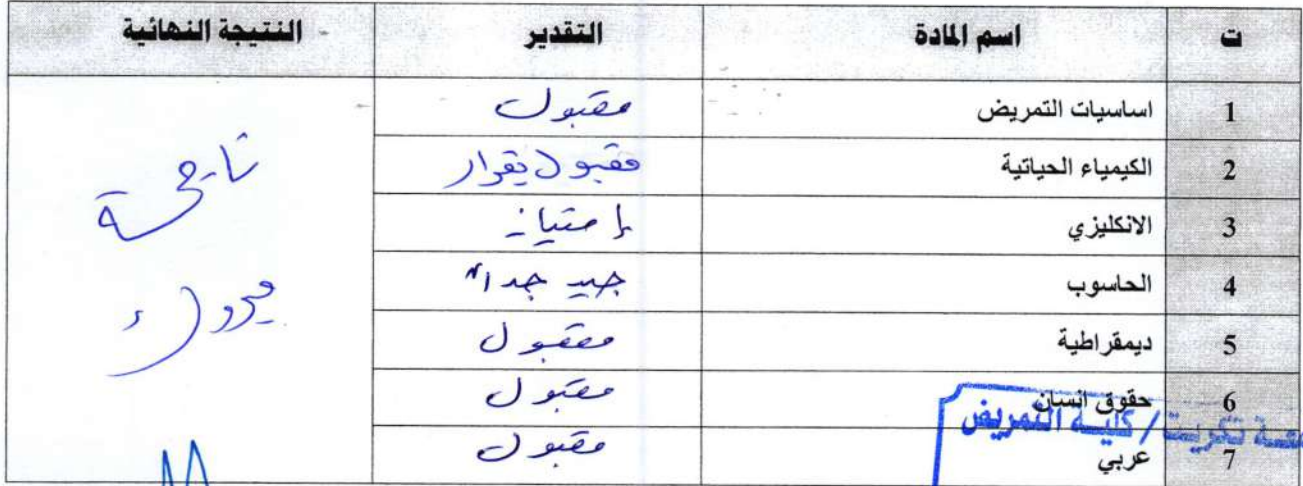 ت اسم المادة التقدير النتيجة النهائية
1 اساسيات التمريض مقبول
2 الكيمياء الحياتية مقبول بقرار
3 الانكليزي إمتياز
4 الحاسوب جيد جداً
5 ديمقراطية مقبول
6 حقوق انسان مقبول
7 عربي مقبول
ناجحة
تكريت / كلية التمريض